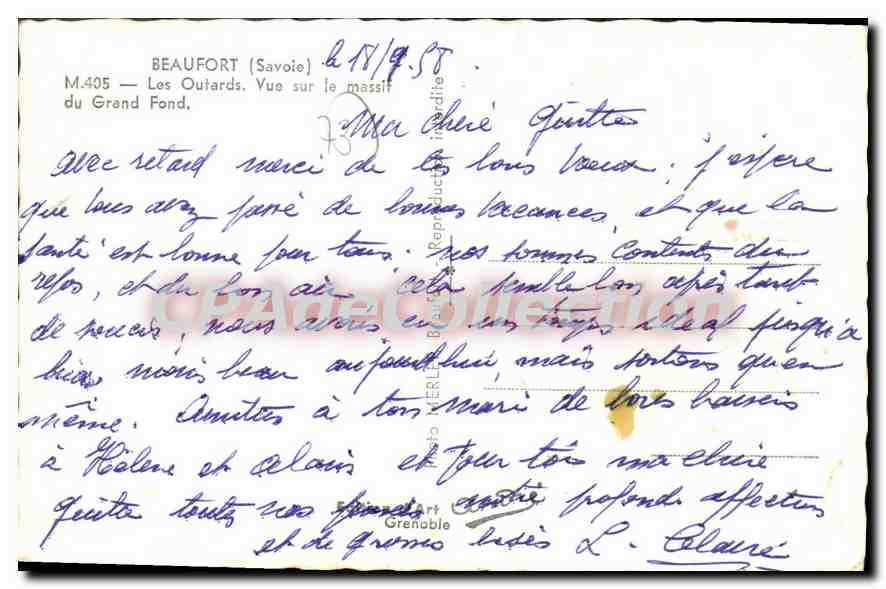 BEAUFORT (Savoie)
le 18/9.58.
M.405 — Les Outards. Vue sur le massif
du Grand Fond.
73
Ma chère Guitte
avec retard merci de tes bons vœux, j'espère
que vous avez passé de bonnes vacances, et que la
santé est bonne pour tous. nos sommes contents du
repos, et du bon air cela semble bon après tant
de soucis, nous avons eu un temps idéal jusqu'à
hier, moins beau aujourd'hui, mais sortons quand
même. Amitiés à ton mari de bons baisers
à Hélène et Alain et pour toi ma chère
Guitte toutes nos notre profonde affection
et de grosses bises L.
Photo MERLE, Beaufort - Reproduction interdite
Editions d'Art
Grenoble
CPArteCollection